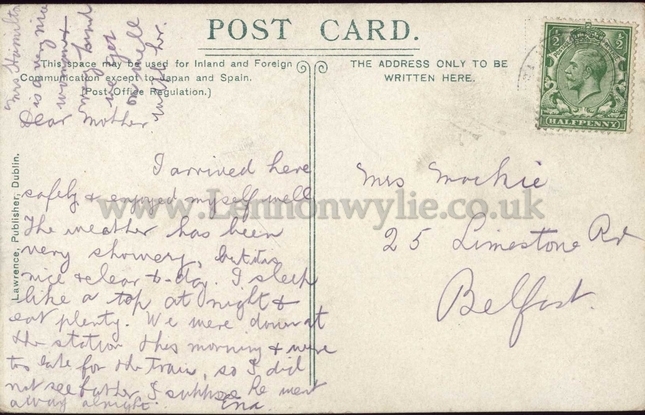 POST CARD.
This space may be used for Inland and Foreign
Communication except to Japan and Spain.
(Post Office Regulation.)
THE ADDRESS ONLY TO BE
WRITTEN HERE.
HALFPENNY
Mrs Hamilton
is a very nice
woman &
we get
on well
Dear Mother.
I arrived here
safely & enjoyed myself well
The weather has been
very showery, but its
nice & clear to-day. I sleep
like a top at night &
eat plenty. We were down at
the station this morning & were
too late for the train, so I did
not see father I suppose he went
away alright. Ena.
Mrs Mackie
25 Limestone Rd
Belfast.
Lawrence, Publisher, Dublin.
www.Lennonwylie.co.uk